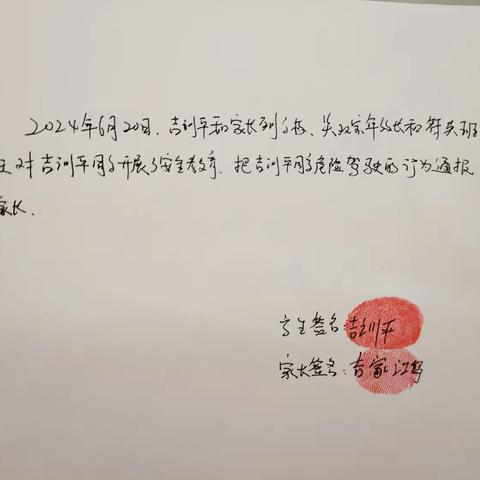 2024年6月20日,吉训平和家长到学校、关政宗年级长和符英班
主对吉训平同学开展了安全教育,把吉训平同学危险驾驶的行为通报
家长.
学生签名:吉训平
家长签名:吉家